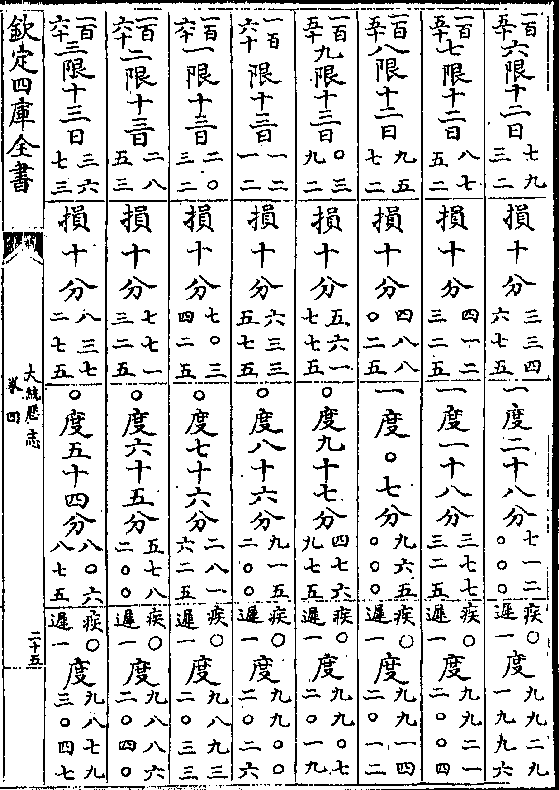 一百五十六限十二日七九三二 損十分三三四六七五 一度二十八分七一二〇〇〇 疾〇遲一度九九二九一九九六
一百五十七限十二日八七五二 損十分四一二三二五 一度一十八分三七七三二五 疾〇遲一度九九二一二〇〇四
一百五十八限十二日九五七二 損十分四八八〇二五 一度〇七分九六五〇〇〇 疾〇遲一度九九一四二〇一二
一百五十九限十三日〇三九二 損十分五六一七七五 〇度九十七分四七六九七五 疾〇遲一度九九〇七二〇一九
一百六十限十三日一二一二 損十分六三三五七五 〇度八十六分九一五二〇〇 疾〇遲一度九九〇〇二〇二六
一百六十一限十三日二〇三二 損十分七〇三四二五 〇度七十六分二八一六二五 疾〇遲一度九八九三二〇三三
一百六十二限十三日二八五三 損十分七七一三二五 〇度六十五分五七八二〇〇 疾〇遲一度九八八六二〇四〇
一百六十三限十三日三六七三 損十分八三七二七五 〇度五十四分八〇六八七五 疾〇遲一度九八七九三〇四七
欽定四庫全書
大統歷志
卷四
二十五